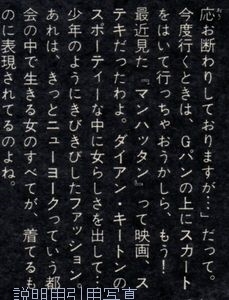 応お断わりしておりますが…」だって。
今度行くときは、Gパンの上にスカート
をはいて行っちゃおうかしら、もう！
最近見た『マンハッタン』って映画、ス
テキだったわよ。ダイアン・キートンの
スポーティーな中に女らしさを出して、
少年のようにきびきびしたファッション。
あれは、きっとニューヨークっていう都
会の中で生きる女のすべてが、着てるも
のに表現されてるのよね。
説明用引用写真